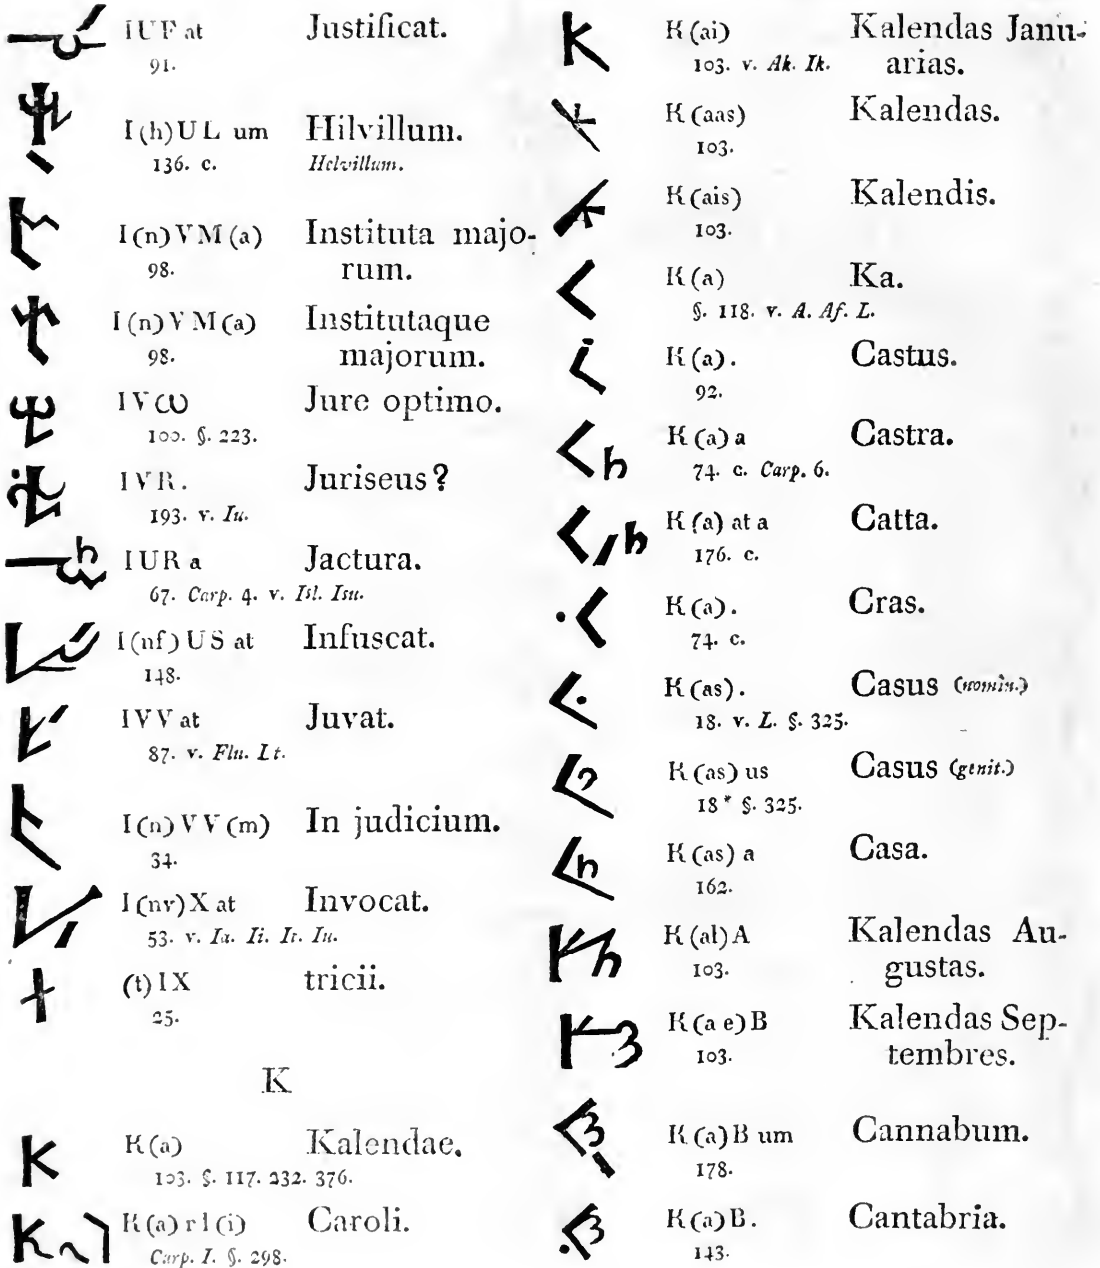 IUF at Justificat.
91.
I(h)UL um Hilvillum.
136. c. Helvillum.
I(n)VM(a) Instituta majo-
98. rum.
I(n)VM(a) Institutaque
98. majorum.
IVω Jure optimo.
100. §. 223.
IVR. Juriseus?
193. v. Iu.
IUR a Jactura.
67. Carp. 4. v. Isl. Isu.
I(nf)US at Infuscat.
148.
IVV at Juvat.
87. v. Flu. Lt.
I(n)VV(m) In judicium.
34.
I(nv)X at Invocat.
53. v. Ia. Ii. It. Iu.
(t)IX tricii.
25.
K
K(a) Kalendae.
103. §. 117. 232. 376.
K(a)rl(i) Caroli.
Carp. I. §. 298.
K(ai) Kalendas Janu-
103. v. Ak. Ik. arias.
K(aas) Kalendas.
103.
K(ais) Kalendis.
103.
K(a) Ka.
§. 118. v. A. Af. L.
K(a). Castus.
92.
K(a)a Castra.
74. c. Carp. 6.
K(a)at a Catta.
176. c.
K(a). Cras.
74. c.
K(as). Casus (nomin.)
18. v. L. §. 325.
K(as)us Casus (genit.)
18* §. 325.
K(as)a Casa.
162.
K(al)A Kalendas Au-
103. gustas.
K(a e)B Kalendas Sep-
103. tembres.
K(a)B um Cannabum.
178.
K(a)B. Cantabria.
143.